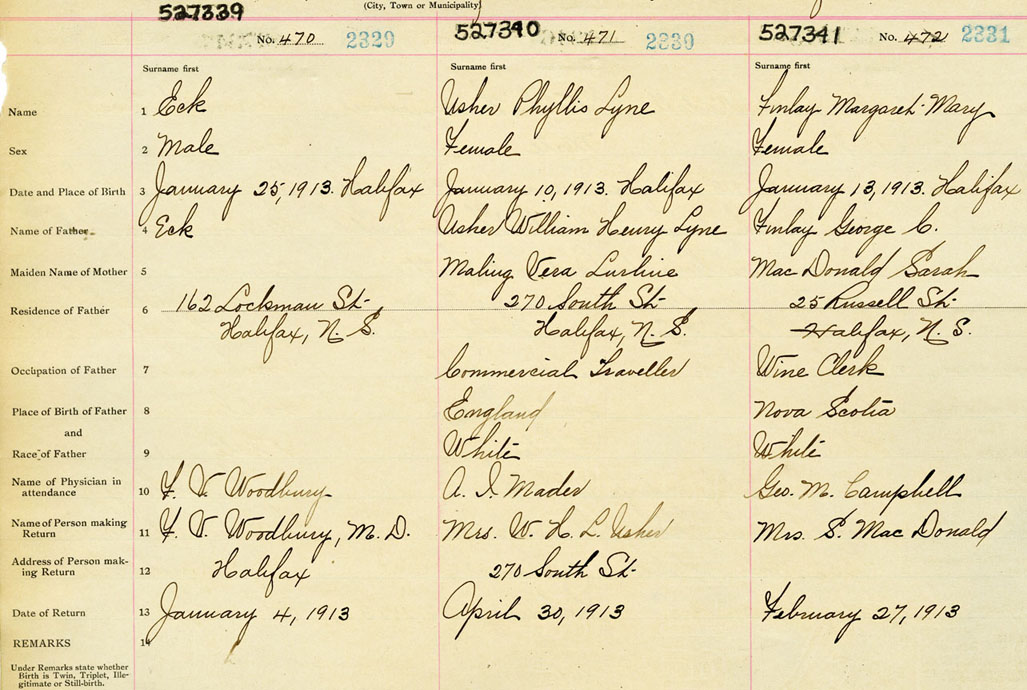 (City, Town or Municipality)
527339
No. 470 2329
527340
No. 471 2330
527341
No. 472 2331
Surname first
Surname first
Surname first
Name 1 Eck
Usher Phyllis Lyne
Finlay Margaret Mary
Sex 2 Male
Female
Female
Date and Place of Birth 3 January 25, 1913. Halifax
January 10, 1913. Halifax
January 13, 1913. Halifax
Name of Father 4 Eck
Usher William Henry Lyne
Finlay George C.
Maiden Name of Mother 5
Maling Vera Lurline
Mac Donald Sarah
Residence of Father 6 162 Lockman St.
Halifax, N. S.
270 South St.
Halifax, N. S.
25 Russell St.
Halifax, N. S.
Occupation of Father 7
Commercial Traveller
Wine Clerk
Place of Birth of Father 8
England
Nova Scotia
and
Race of Father 9
White
White
Name of Physician in
attendance 10 F. V. Woodbury
A. I. Mader
Geo. M. Campbell
Name of Person making
Return 11 F. V. Woodbury, M. D.
Mrs. W. H. L. Usher
Mrs. S. Mac Donald
Address of Person mak-
ing Return 12 Halifax
270 South St.
Date of Return 13 January 4, 1913
April 30, 1913
February 27, 1913
REMARKS 14
Under Remarks state whether
Birth is Twin, Triplet, Ille-
gitimate or Still-birth.